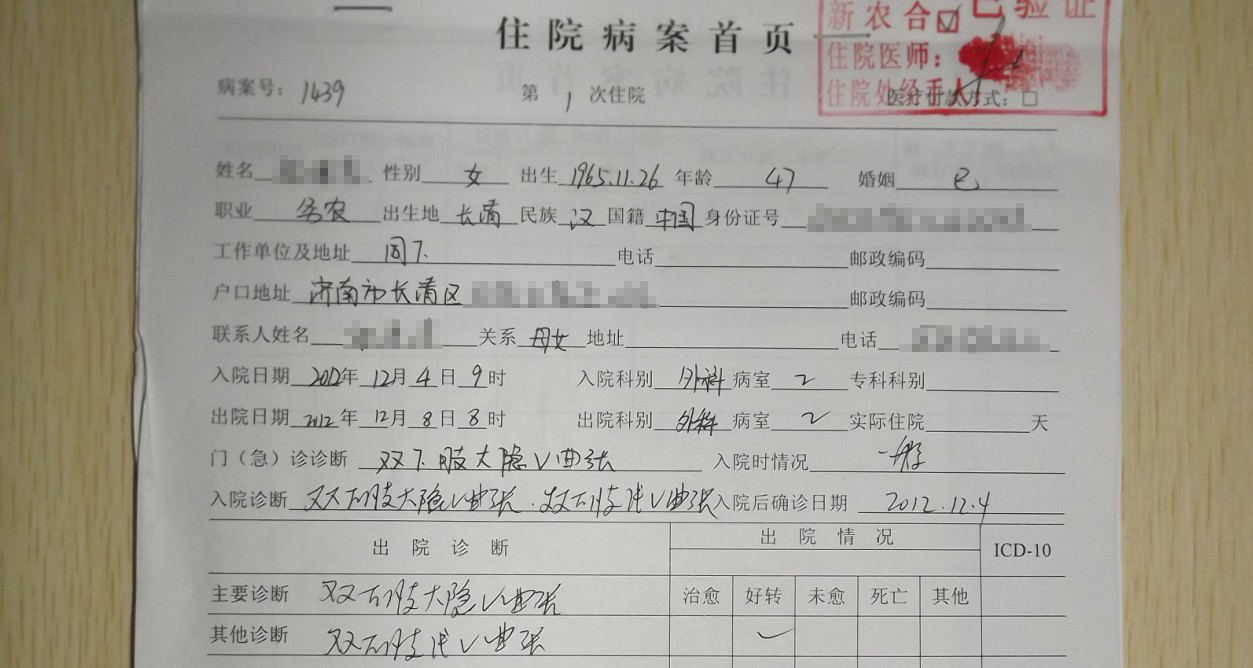 住院病案首页
新农合☑ 已验证
住院医师：
住院处经手人
病案号：1439 第 1 次住院 医疗付款方式：□
姓名 性别 女 出生 1965.11.26 年龄 47 婚姻 已
职业 务农 出生地 长清 民族 汉 国籍 中国 身份证号
工作单位及地址 同下. 电话 邮政编码
户口地址 济南市长清区 邮政编码
联系人姓名 关系 母女 地址 电话
入院日期 2012年 12月 4日 9时 入院科别 外科 病室 2 专科科别
出院日期 2012年 12月 8日 8时 出院科别 外科 病室 2 实际住院 天
门（急）诊诊断 双下肢大隐V曲张 入院时情况 一般
入院诊断 双下肢大隐V曲张.双下肢浅V曲张 入院后确诊日期 2012.12.4
出院诊断 出院情况 ICD-10
主要诊断 双下肢大隐V曲张 治愈 好转 未愈 死亡 其他
其他诊断 双下肢浅V曲张 ✓